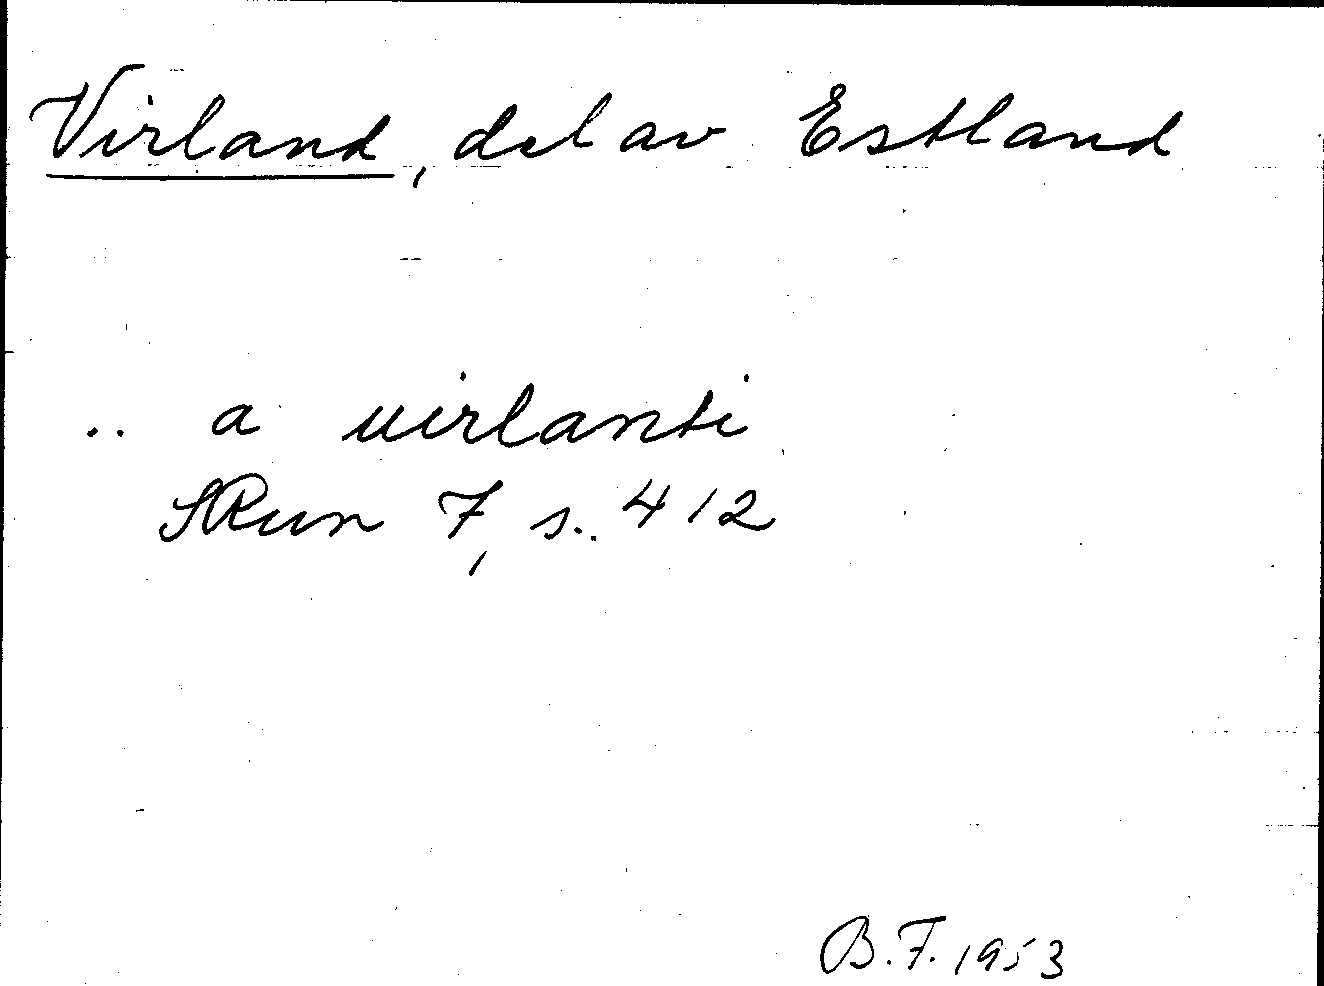 Virland, del av Estland
.. a uirlanti
SRun 7, s. 412
B.F. 1953